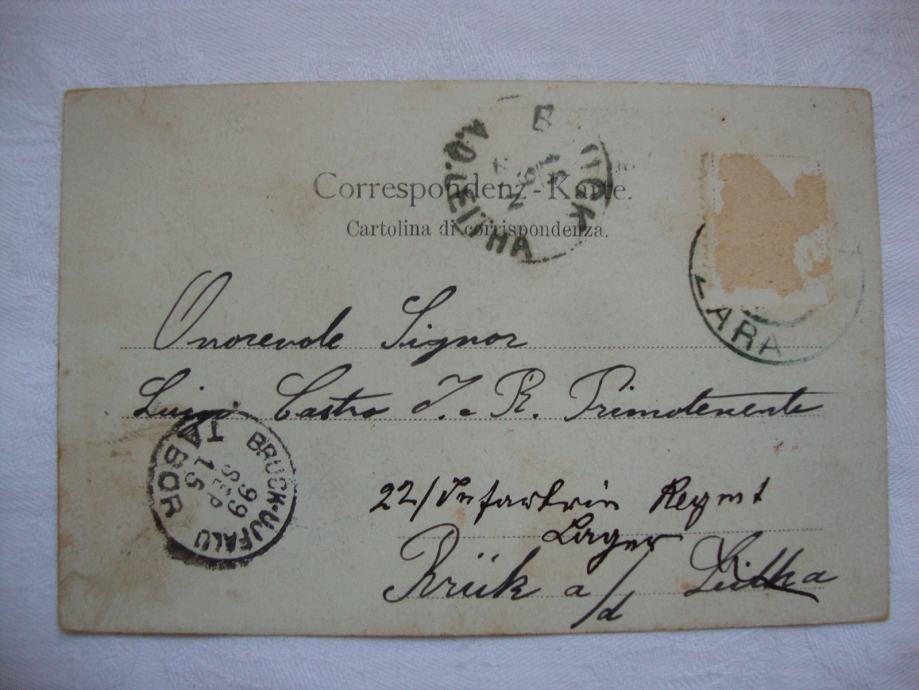 Correspondenz-Karte.
Cartolina di corrispondenza.
BRUCK
A.D. LEITHA
ZARA
Onorevole Signor
Luigi Castro I. e R. Primotenente
BRUCK-UJFALU
99
SEP
15
TABOR
22/Infantrie Regmt
Lager
Brük a/d Leitha